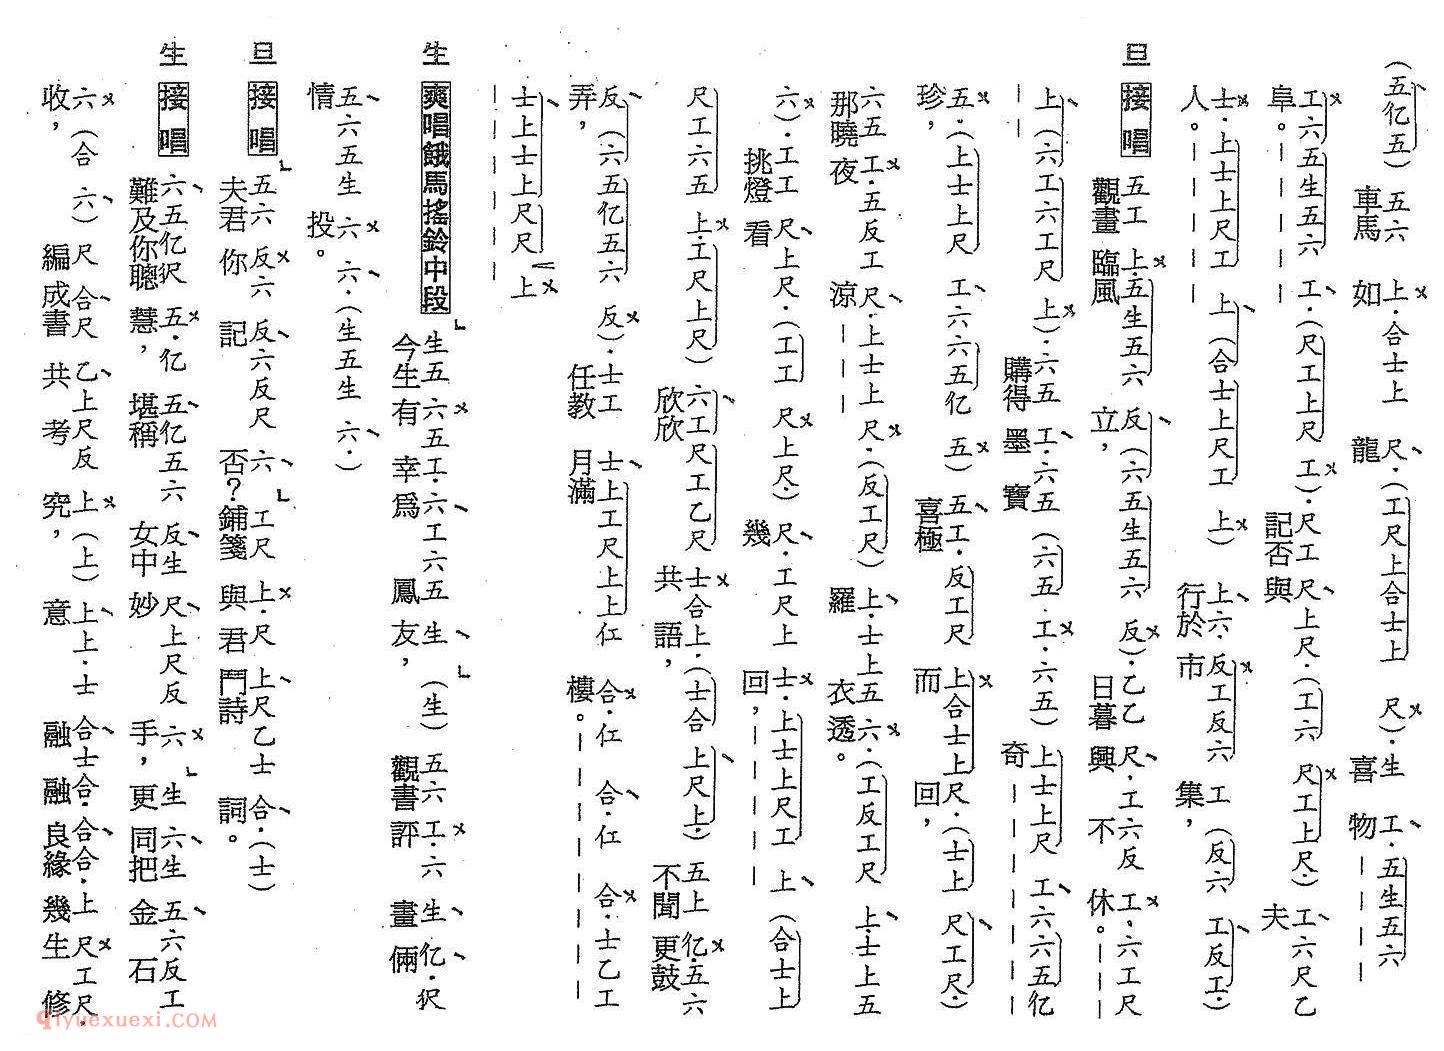 (五亿五) 五六 上·合士上 尺·(工尺上合士上 尺)·生 工·五生五六
車馬 如 龍 喜 物———
工六五生五六 工·(尺工上尺 工)·尺工 尺上尺·(工六 尺工上尺·) 工六尺乙
阜。———— 記否與 夫
士·上士上尺工 上(合士上尺工 上) 上六·反工反六 工(反六 工反工·)
人。———— 行於市 集,
旦 接唱 五工 上·五生五六 反(六五生五六 反)·乙乙 尺·工六反 工·六工尺
觀畫臨風 立, 日暮興 不 休。———
上(六工六工尺 上)·六五 工·六五(六五·工·六五) 上士上尺 工六六五亿
—— 購得 墨 寶 奇————
五·(上士上尺 工·六六五亿 五) 五工·反工尺 上合士上尺·(士上 尺工尺·)
珍, 喜極 而 回,
六五 工·五反工 尺·上士上 尺·(反工尺) 上·士上五六·(工反工尺 上·士上五
那曉夜 涼——— 羅 衣透。
六)·工工 尺上尺·(工工 尺上尺·) 尺·工尺上 士·上士上尺工 上(合士上
挑燈看 幾 回,————
尺工六五 上·工尺上尺) 六工尺工乙尺 士合上·(士合 上尺上·) 五上 亿·五六
欣欣 共 語, 不聞 更鼓
反(六五亿五六 反)·士工 士上工尺上上仁 合·仁 合·仁 合·士乙工
弄, 任教 月滿 樓。————————
士上士上尺尺 上
——————
生 爽唱餓馬搖鈴中段 生五六五工·六工六五生 (生) 五六工·六生亿·伬
今生有幸為鳳友, 觀書評畫倆
五六五生六 六·(生五生 六·)
情 投。
旦 接唱 五六 反六 反六反尺 六工尺 上·尺 上尺乙士 合·(士)
夫君你記 否?鋪箋與君鬥詩 詞。
生 接唱 六五亿伬 五·亿 五亿五六 反生 尺上尺反六 生六生五六反工
難及你聰慧,堪稱女中妙手,更同把金石
六(合 六)尺合尺乙上尺反上(上)上上·士合士合·合合·上尺工尺·
收, 編成書共考究, 意融融良緣幾生修
qiyuexuexi.COM